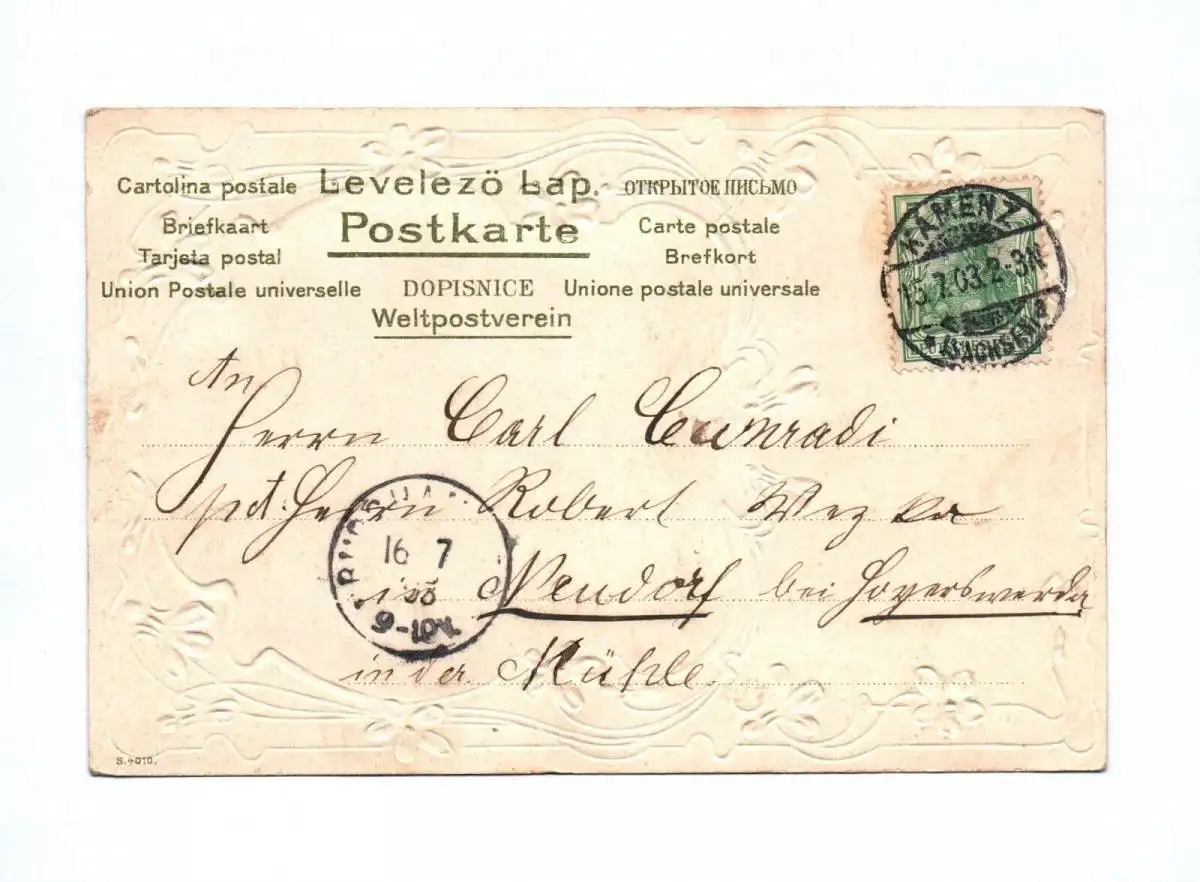 Cartolina postale Levelezö Lap. ОТКРЫТОЕ ПИСЬМО
Briefkaart Postkarte Carte postale
Tarjeta postal Brefkort
Union Postale universelle DOPISNICE Unione postale universale
Weltpostverein
KAMENZ
15.7.03.2-3N
*(SACHSEN)*
An
Herrn Carl Cunradi
pdt. Herrn Robert
16 7
03
9-10V.
in Neudorf bei Hoyerswerda
in der Mühle.
S.4010.